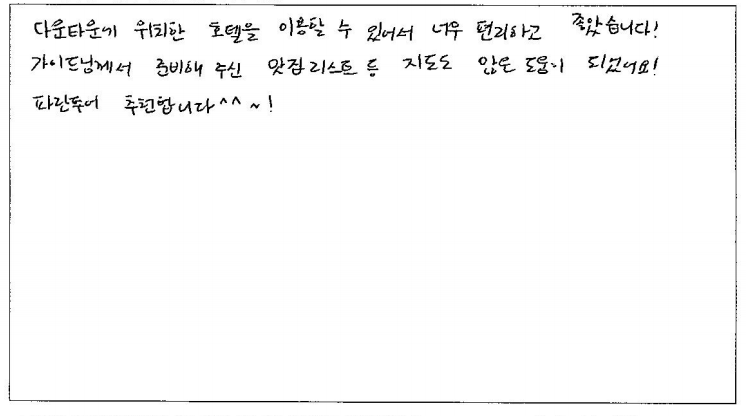 다운타운에 위치한 호텔을 이용할 수 있어서 너무 편리하고 좋았습니다!
가이드님께서 준비해 주신 맛집리스트 등 지도도 많은 도움이 되었어요!
파란투어 추천합니다^^~!